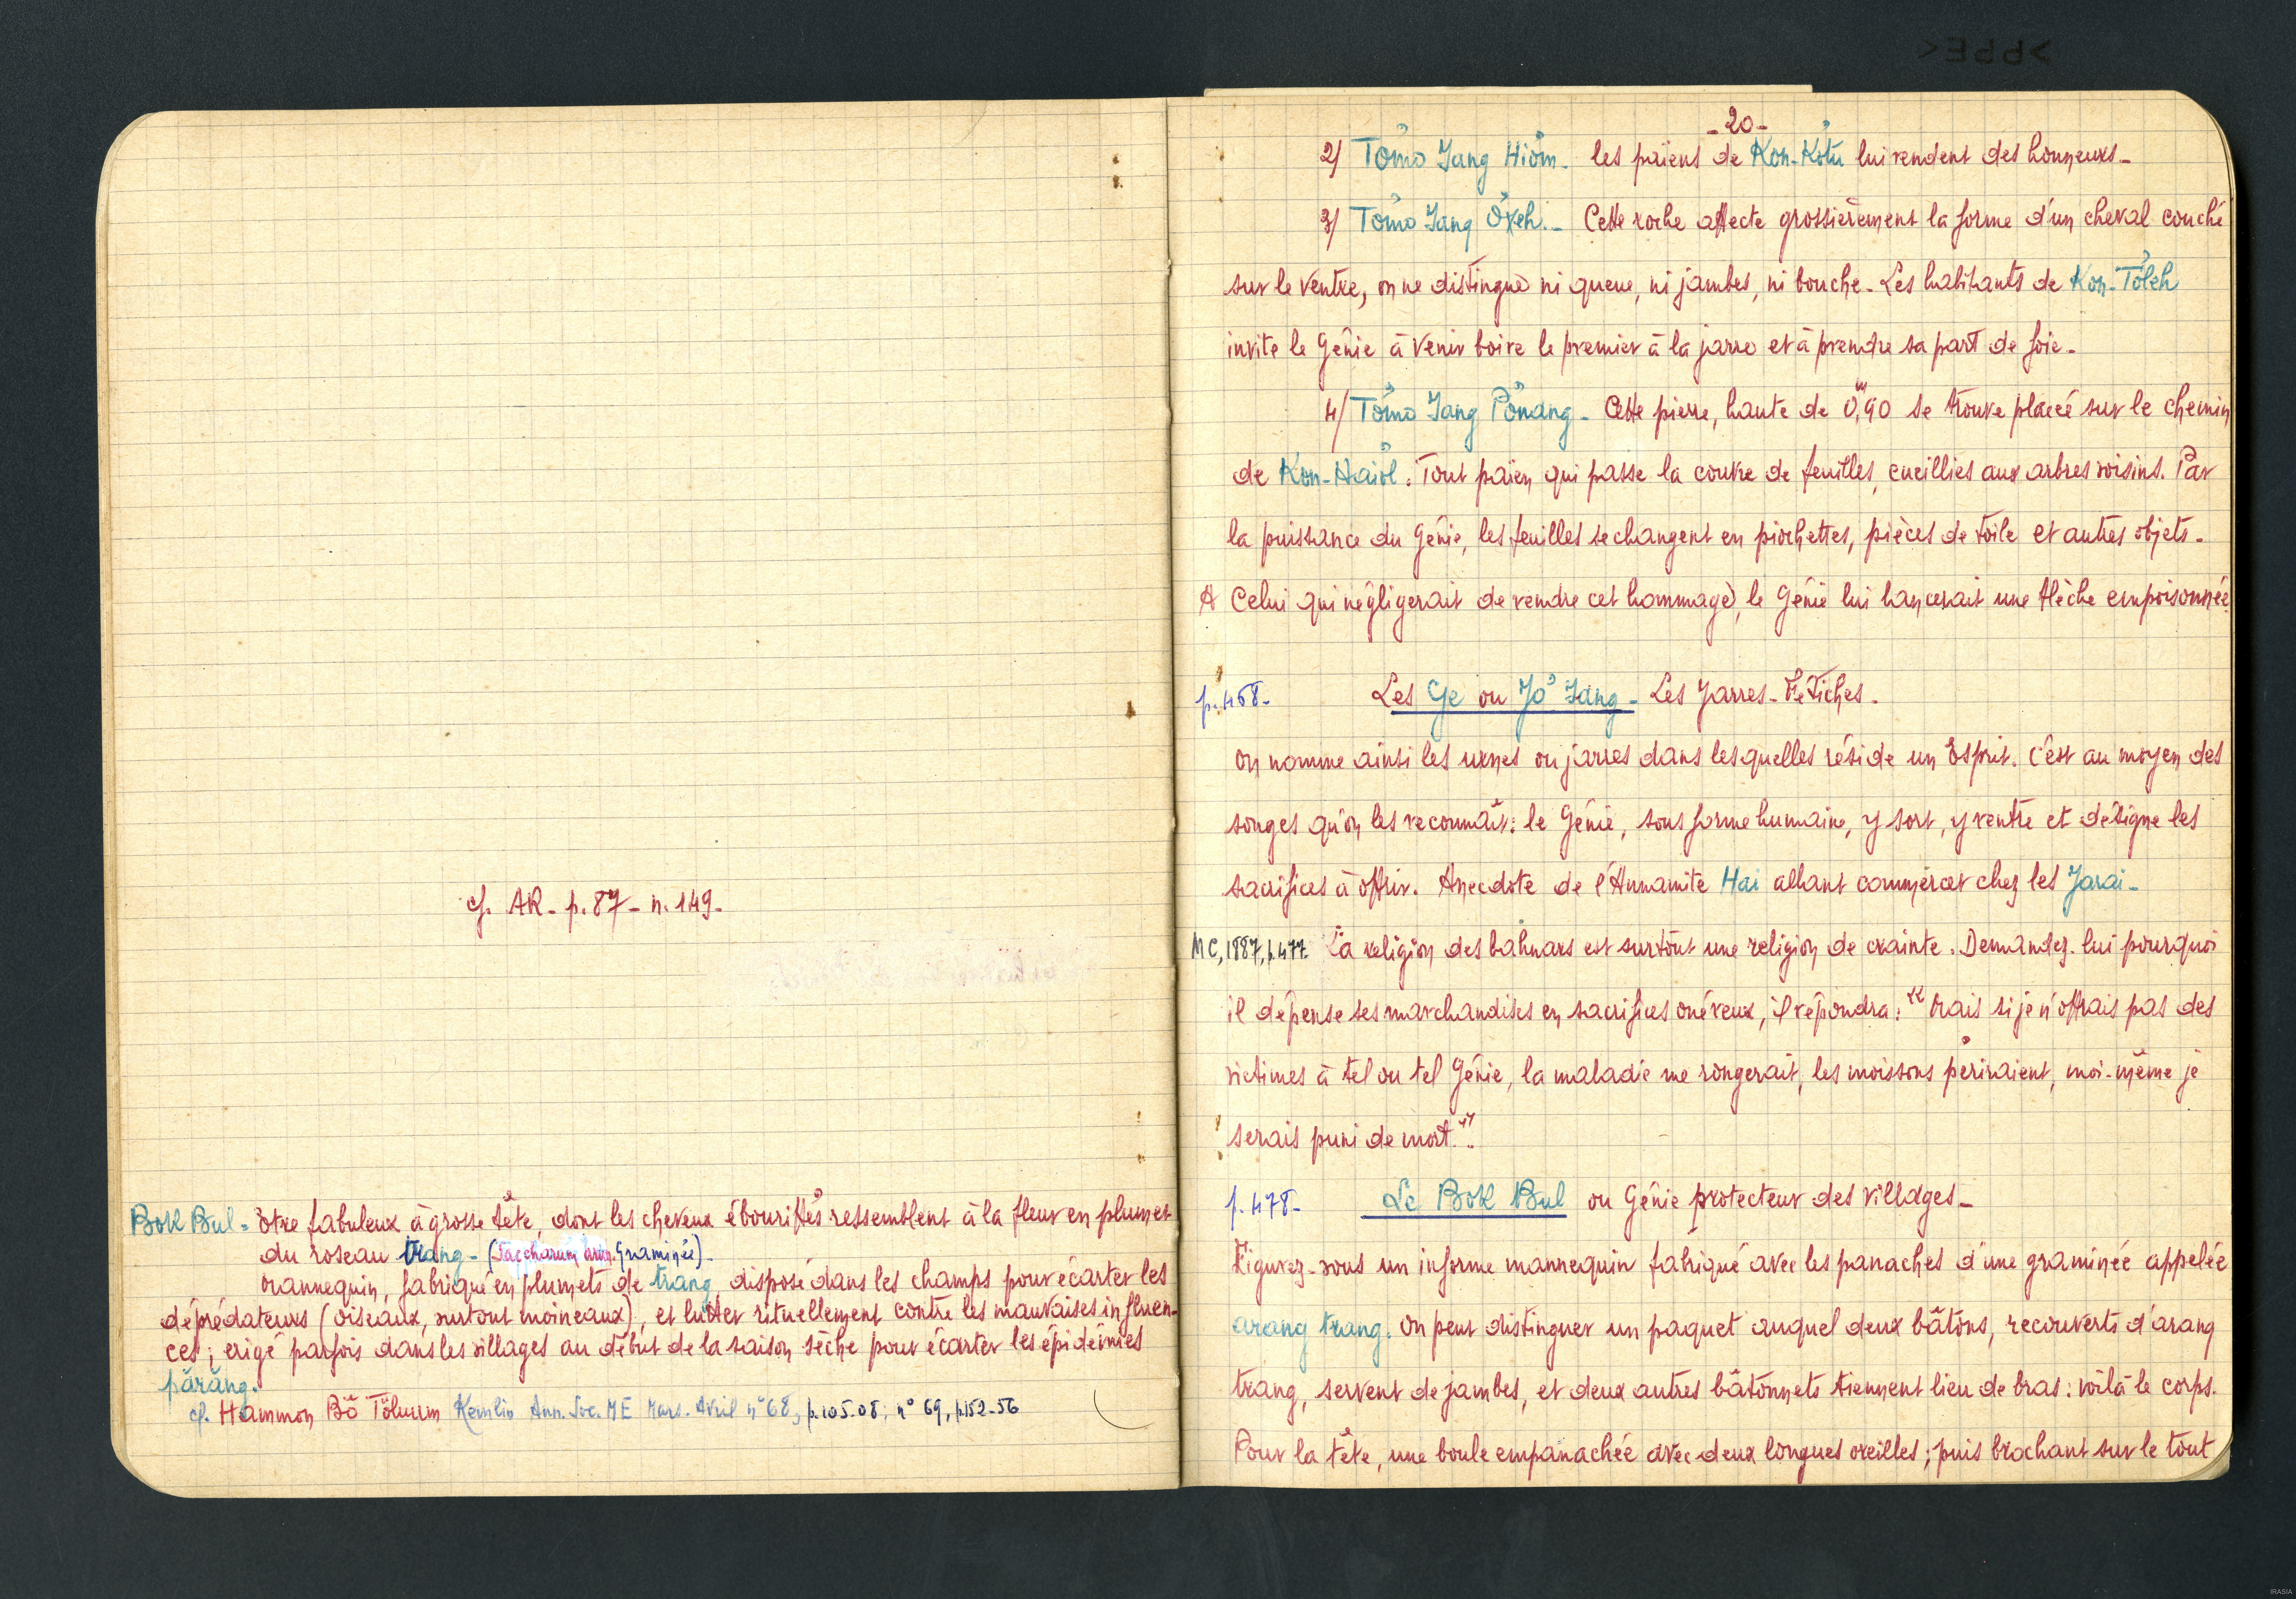 cf. AR. p. 87 - n. 149.
Bok Bul = être fabuleux à grosse tête, dont les cheveux ébouriffés ressemblent à la fleur en plumet
du roseau trang - (Saccharum arun. Graminée).
Mannequin, fabriqué en plumets de trang, disposé dans les champs pour écarter les
déprédateurs (oiseaux, surtout moineaux), et lutter rituellement contre les mauvaises influen-
ces; erigé parfois dans les villages au début de la saison sèche pour écarter les épidémies
pơrăng.
cf. Hammon Bơ Tơlŭm Kemlin Ann. Soc. ME Mars. Avril n° 68, p. 105-08; n° 69, p. 152-56
- 20 -
2/ Tơmo Yang Hiơm. les païens de Kon-Kơtu lui rendent des honneurs -
3/ Tơmo Yang Ơxeh. - Cette roche affecte grossièrement la forme d'un cheval couché
sur le ventre, on ne distingue ni queue, ni jambes, ni bouche. Les habitants de Kon-Tơleh
invite le Génie à venir boire le premier à la jarre et à prendre sa part de foie.
4/ Tơmo Yang Pơnang - Cette pierre, haute de 0,m90 se trouve placée sur le chemin
de Kon-Haiơl. Tout païen qui passe la couvre de feuilles, cueillies aux arbres voisins. Par
la puissance du Génie, les feuilles se changent en piochettes, pièces de toile et autres objets -
A Celui qui négligerait de rendre cet hommage, le Génie lui lancerait une flèche empoisonnée.
p. 458 - Les Ge ou Yơ Yang - Les Jarres-Fétiches.
On nomme ainsi les urnes ou jarres dans lesquelles réside un Esprit. C'est au moyen des
songes qu'on les reconnaît: le Génie, sous forme humaine, y sort, y rentre et désigne les
sacrifices à offrir. Anecdote de l'Annamite Hai allant commercer chez les Jarai -
MC, 1887, p. 477. La religion des bahnars est surtout une religion de crainte. Demandez-lui pourquoi
il dépense ses marchandises en sacrifices onéreux, il répondra: "Mais si je n'offrais pas des
victimes à tel ou tel Génie, la maladie me rongerait, les moissons périraient, moi-même je
serais puni de mort".
p. 478 - Le Bok Bul ou Génie protecteur des villages -
Figurez-vous un informe mannequin fabriqué avec les panaches d'une graminée appelée
arang trang. On peut distinguer un paquet auquel deux bâtons, recouverts d'arang
trang, servent de jambes, et deux autres bâtonnets tiennent lieu de bras: voilà le corps.
Pour la tête, une boule empanachée avec deux longues oreilles; puis brochant sur le tout
IRASIA